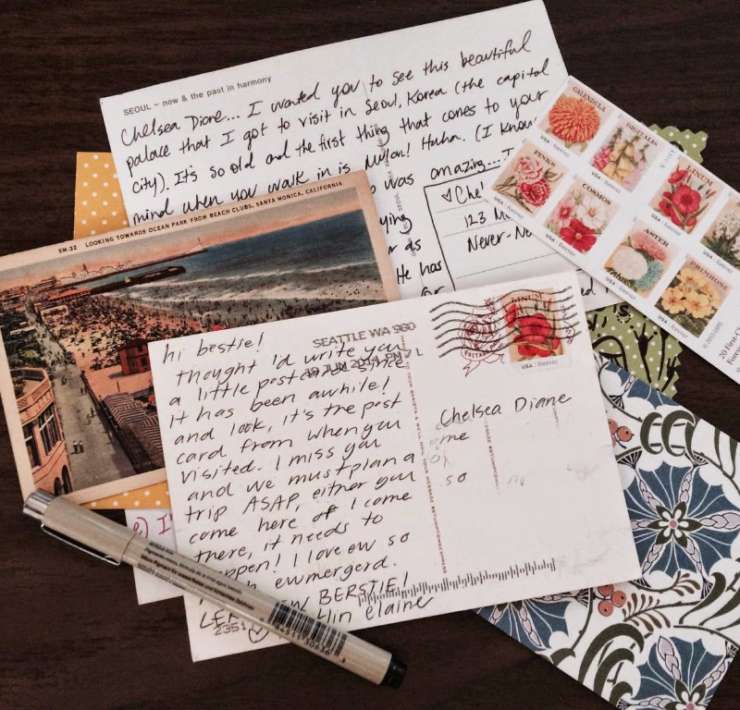 SEOUL - now & the past in harmony
Chelsea Diane... I wanted you to see this beautiful
palace that I got to visit in Seoul, Korea (the capital
city). It's so old and the first thing that comes to your
mind when you walk in is Mulan! Huha. (I know
was amazing... I
ying
as
He has
for
♡ Che
123 M
Never-Ne
ed
SM-32 LOOKING TOWARDS OCEAN PARK FROM BEACH CLUBS, SANTA MONICA, CALIFORNIA
CALENDULA
DIGITALIS
LINUM
DIANTHUS
COSMOS
ASTER
PRIMROSE
USA Forever
20 First-C
Forever
SEATTLE WA 980
19 JUN 2014 PM 7 L
hi bestie!
thought I'd write you
a little postcard since
it has been awhile!
and look, it's the post
card from when you
visited. I miss you
and we must plan a
trip ASAP, either you
come here or I come
there, it needs to
ppen! I love ew so
h ewmergerd.
W BERSTIE!
LE
lin elaine
Chelsea Diane
me
so
no
LINUM
USA Forever
2351